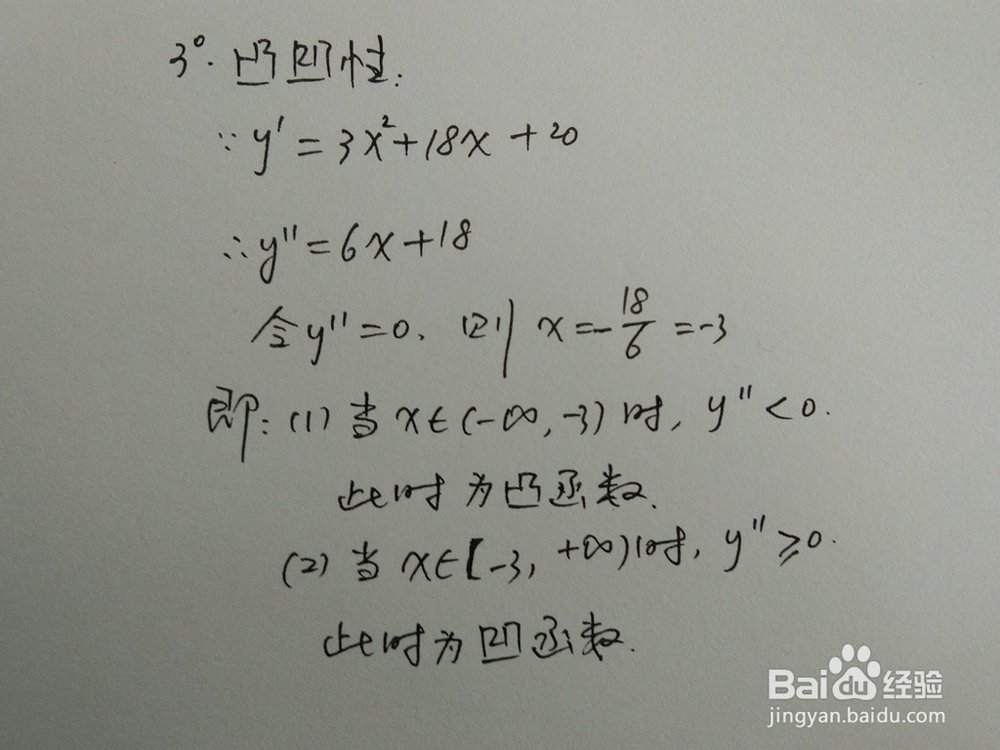 3°. 凸凹性:
∵y'=3x²+18x+20
∴y''=6x+18
令y''=0, 则 x=-18/6=-3
即:(1)当x∈(-∞,-3)时, y''<0.
此时为凸函数.
(2)当x∈[-3,+∞)时, y''≥0.
此时为凹函数.
Baidu经验
jingyan.baidu.com